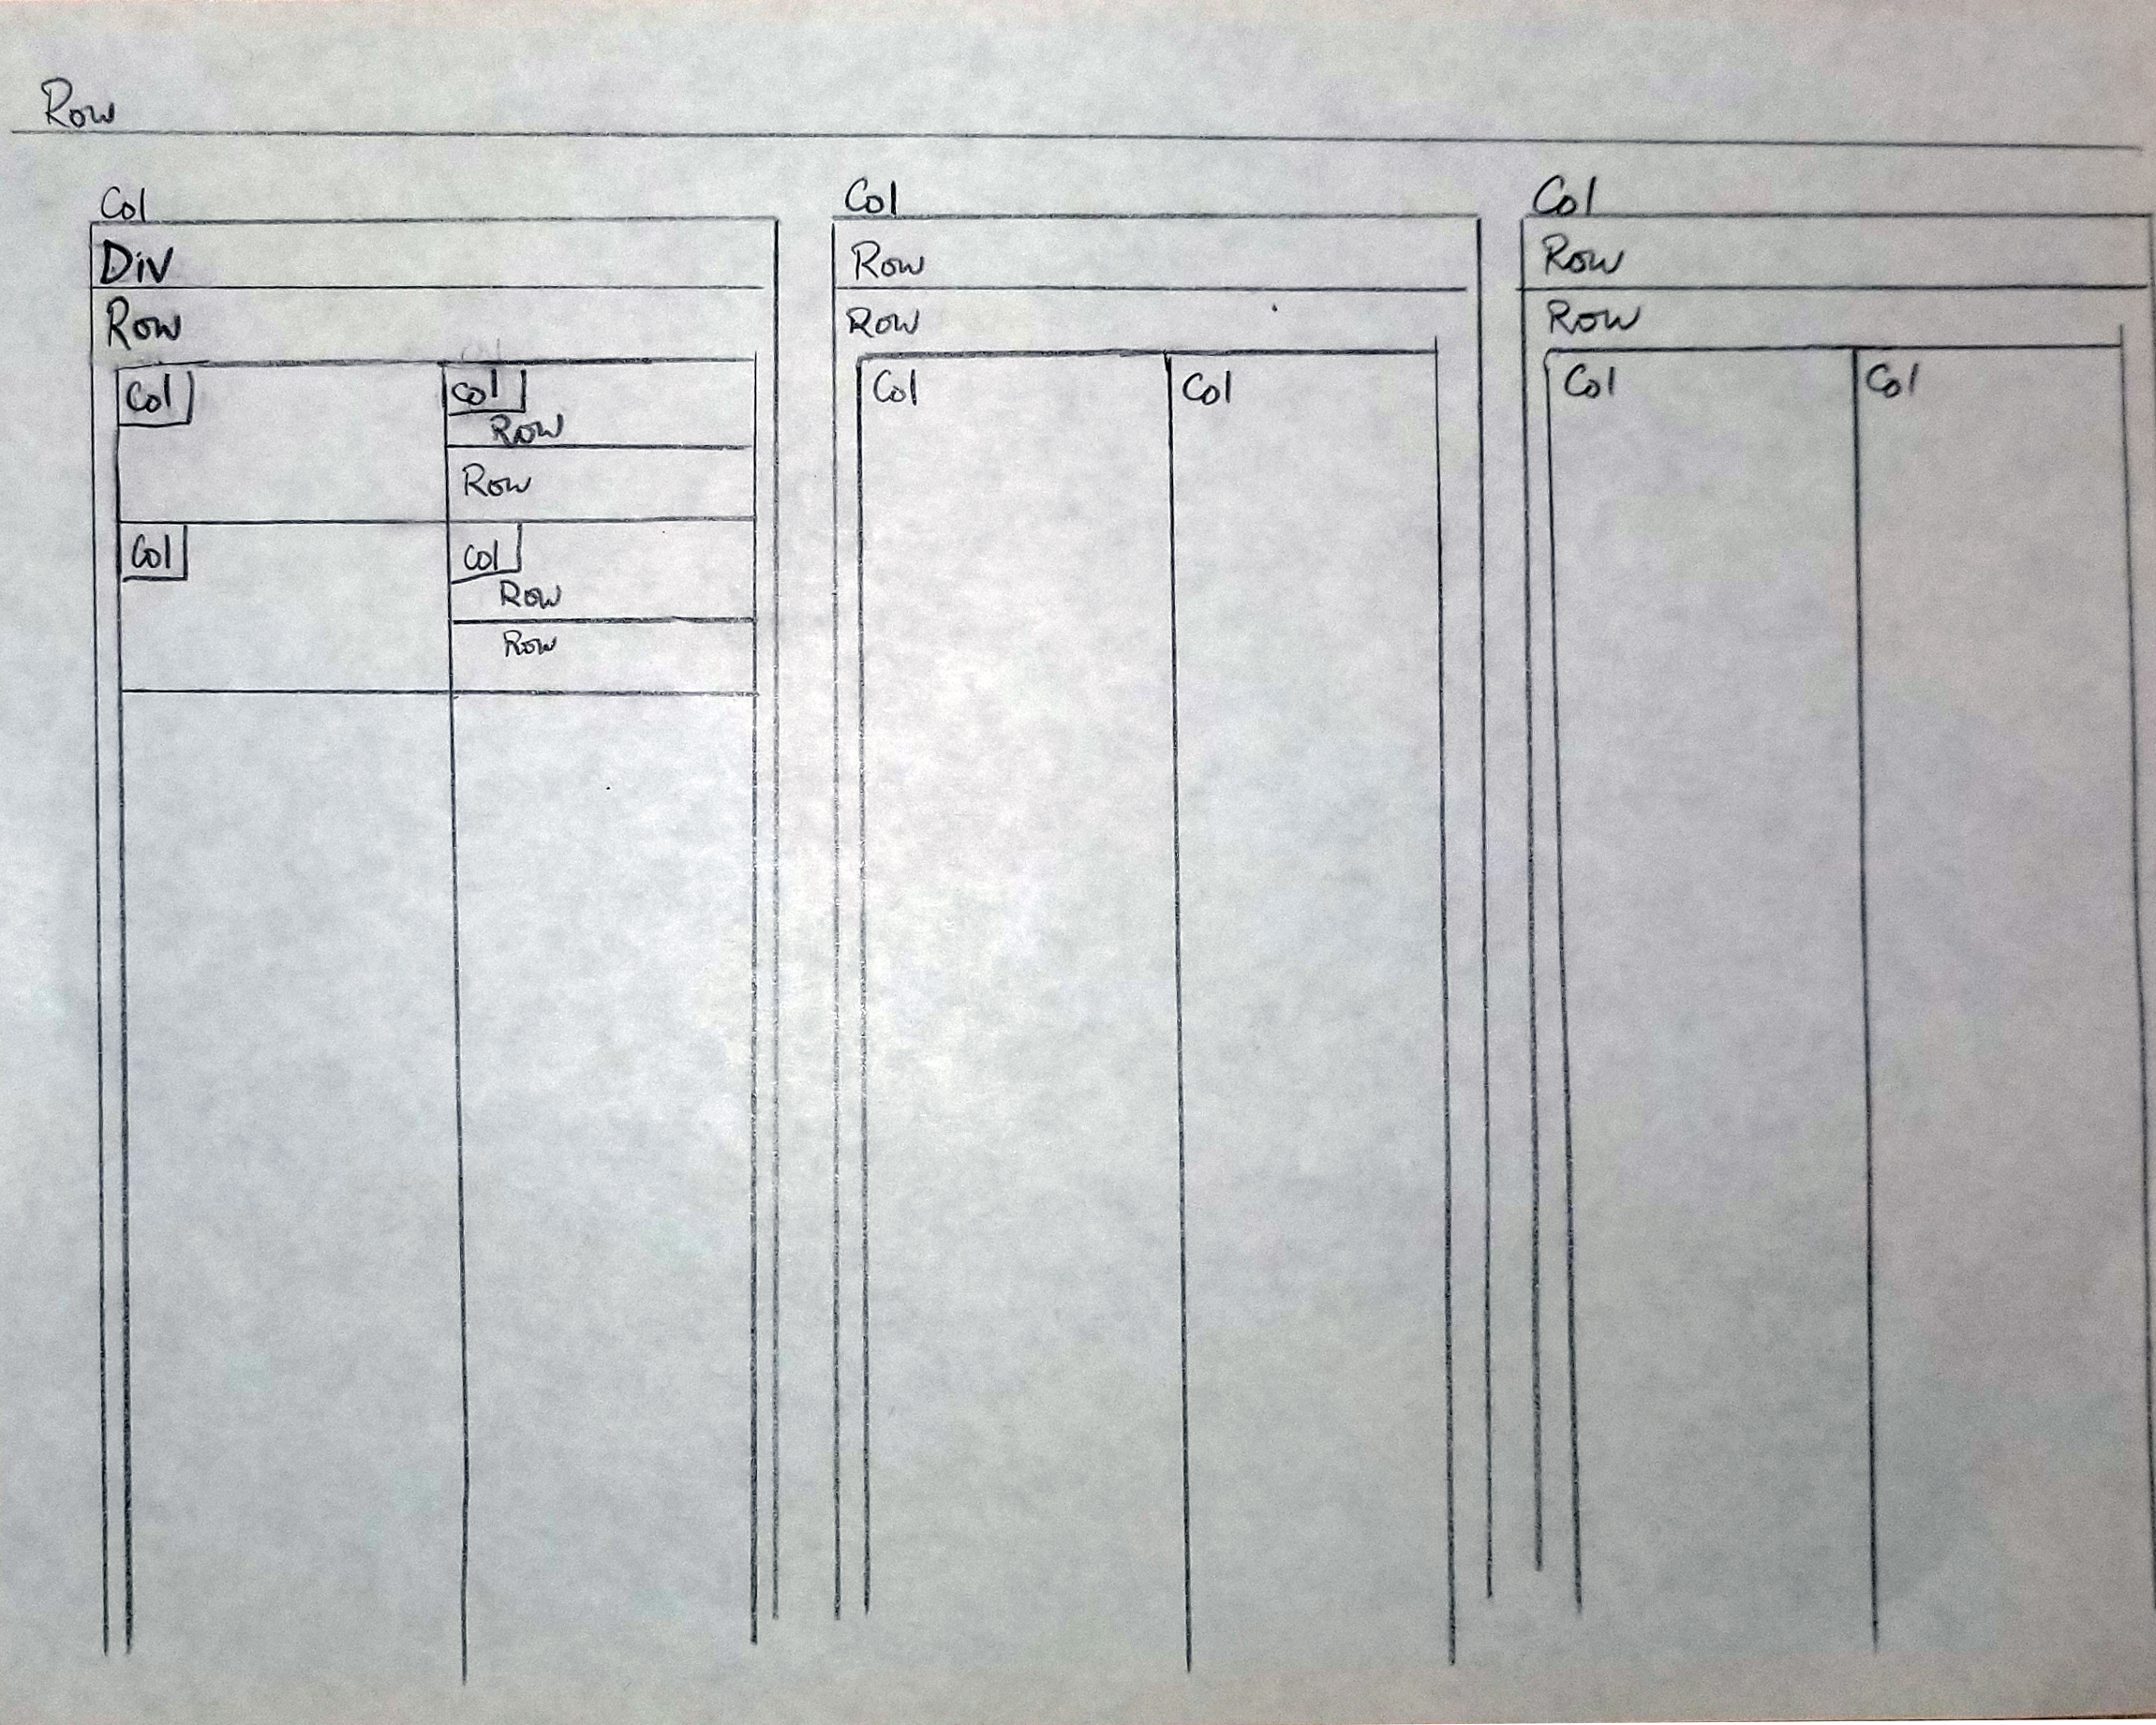 Row
Col
Div
Row
Col
Col
Row
Row
Col
Col
Row
Row
Col
Row
Row
Col
Col
Col
Row
Row
Col
Col